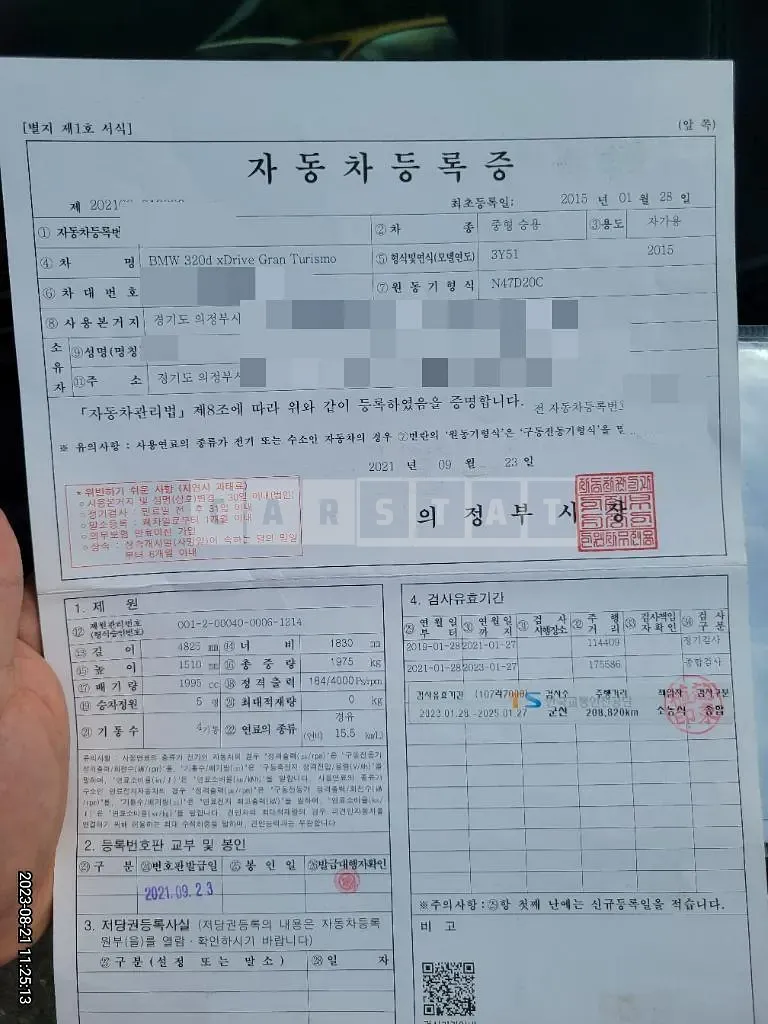 [별지 제1호 서식]
(앞 쪽)
자동차등록증
제 2021
최초등록일: 2015 년 01 월 28 일
① 자동차등록번
② 차 종 중형 승용 ③ 용도 자가용
④ 차 명 BMW 320d xDrive Gran Turismo ⑤ 형식및연식(모델연도) 3Y51 2015
⑥ 차 대 번 호 ⑦ 원 동 기 형 식 N47D20C
⑧ 사 용 본 거 지 경기도 의정부시
소유자 ⑨ 성명(명칭
⑪ 주 소 경기도 의정부시
「자동차관리법」 제8조에 따라 위와 같이 등록하였음을 증명합니다. 전 자동차등록번
※ 유의사항 : 사용연료의 종류가 전기 또는 수소인 자동차의 경우 ⑦번란의 '원동기형식'은 '구동전동기형식'을
2021 년 09 월 23 일
* 위반하기 쉬운 사항 (지연시 과태료)
○ 사용본거지 및 성명(상호)변경 : 30일 이내(법인)
○ 정기검사 : 만료일 전 후 31일 이내
○ 말소등록 : 폐차일로부터 1개월 이내
○ 의무보험 만료이전 가입
○ 상속 : 상속개시일(사망일)이 속하는 달의 말일
부터 6개월 이내
CARSTAT
의 정 부 시 장
1. 제 원
⑫ 제원관리번호 (형식승인번호) 001-2-00040-0006-1214
⑬ 길 이 4825 mm ⑭ 너 비 1830 mm
⑮ 높 이 1510 mm ⑯ 총 중 량 1975 kg
⑰ 배 기 량 1995 cc ⑱ 정 격 출 력 184/4000 Ps/rpm
⑲ 승차정원 5 명 ⑳ 최대적재량 0 kg
㉑ 기 통 수 4기통 ㉒ 연료의 종류 경유 (연비) 15.5 km/L
2. 등록번호판 교부 및 봉인
㉓ 구 분 ㉔ 번호판발급일 ㉕ 봉 인 일 ㉖ 발급대행자확인
2021.09.23
3. 저당권등록사실 (저당권등록의 내용은 자동차등록
원부(을)를 열람ㆍ확인하시기 바랍니다)
㉗ 구 분 ( 설 정 또 는 말 소 ) ㉘ 일 자
4. 검사유효기간
㉙ 연 월 일 부 터 ㉚ 연 월 일 까 지 ㉛ 검 사 시행장소 ㉜ 주 행 거 리 ㉝ 검사책임자확인 ㉞ 검 사 구 분
2019-01-28 2021-01-27 114409 정기검사
2021-01-28 2023-01-27 175586 종합검사
검사유효기간 검사소 주행거리 책임자 검사구분
TS 한국교통안전공단
2023.01.28 -2025.01.27 군산 208,820km 종합
※주의사항 : ㉙항 첫째 난에는 신규등록일을 적습니다.
비 고
2023-08-21 11:25:13